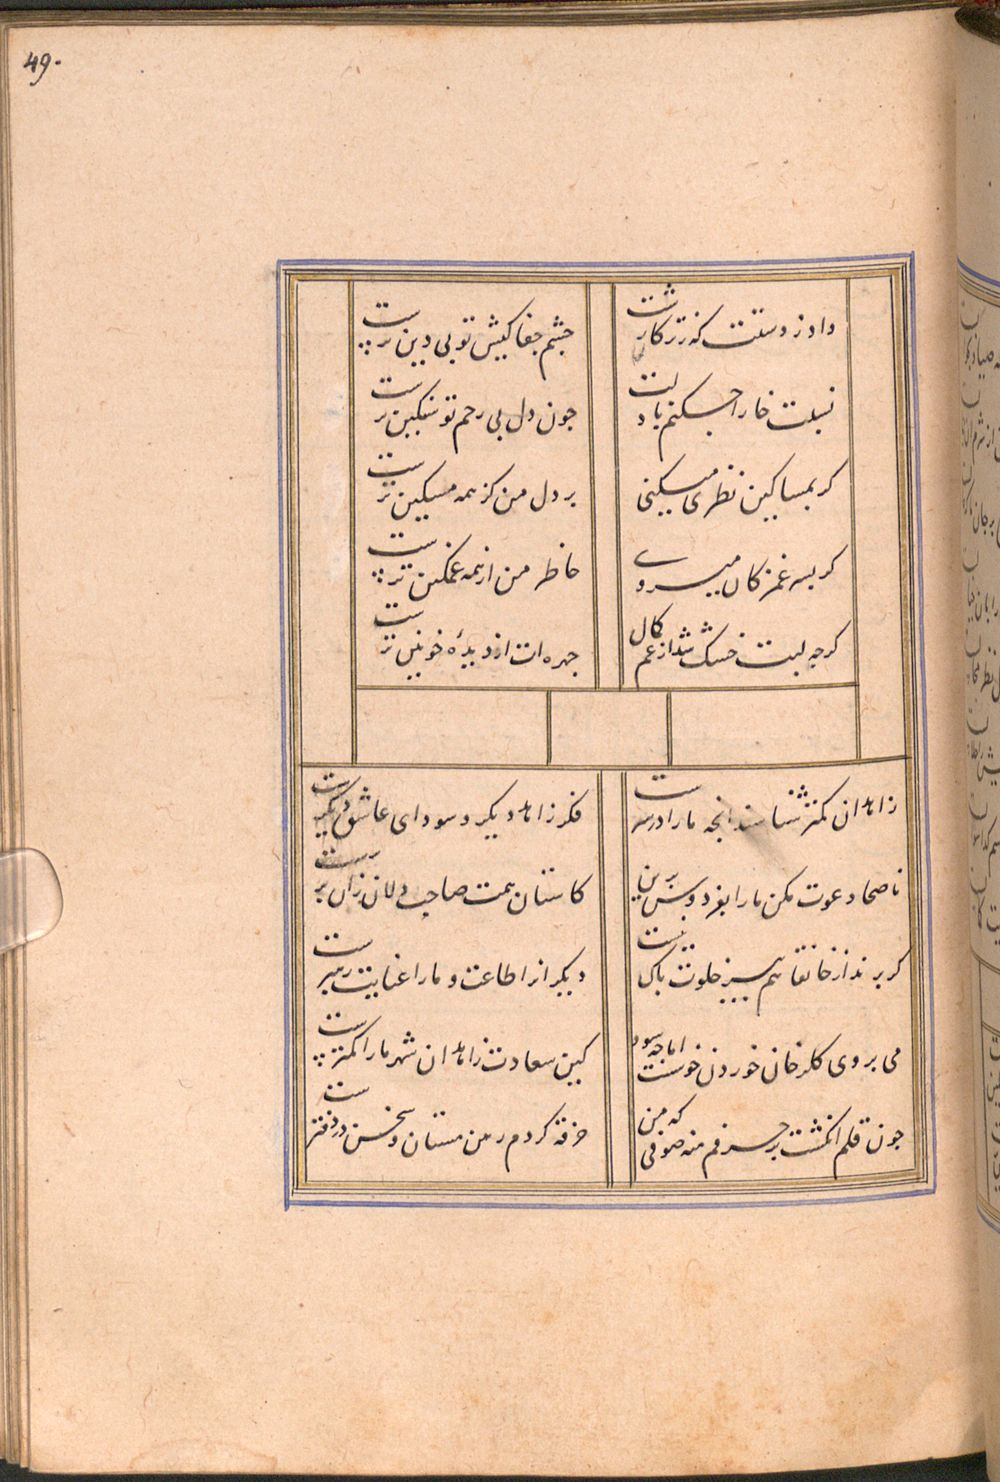 49.
داد ز دستت که ز ترکان
چشم جفا کیش تو بی دین ترست
نسبت خارا چکنم با دلت
چون دل بی رحم تو سنکین ترست
کر بمساکین نظری میکنی
بر دل من کز همه مسکین ترست
کر بسر غمزکان میروی
خاطر من از همه غمکین ترست
کرچه لبت خشک شد از غم کمال
چهره ات از دیدهٔ خونین ترست
زاهدان کمتر شناسند انچه ما را در سرست
فکر زاهد دیکر و سودای عاشق دیکرست
ناصحا دعوت مکن ما را بفردوس برین
کاستان همت صاحب دلان زان برترست
کر براند از خانقاهم پیر خلوت باک نیست
دیکرانرا طاعت و ما را عنایت رهبرست
می بروی کلرخان خوردن خوشست اما چه سود
کین سعادت زاهدان شهر ما را کمترست
چون قلم انکشت بر حرفم منه صوفی که من
خرقه کردم رهن مستان و سخن در دفترست